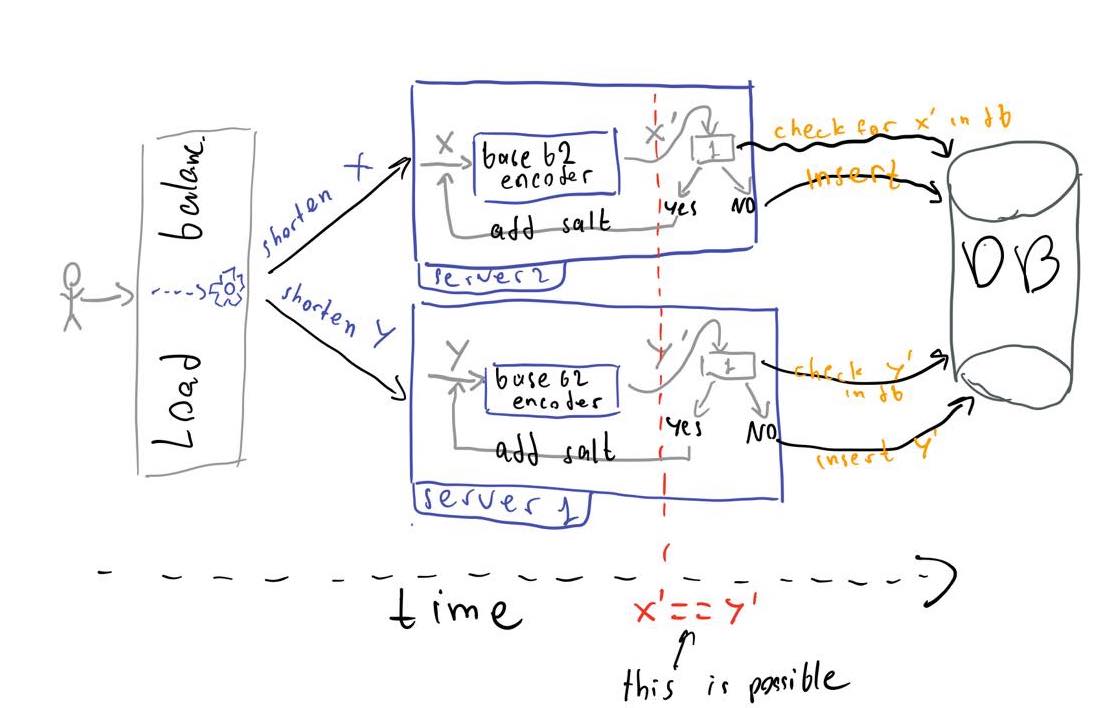 Load balanc.
shorten X
shorten Y
X
base 62
encoder
X'
1
yes
NO
add salt
server 2
check for x' in db
Insert
Y
base 62
encoder
Y'
1
yes
NO
add salt
server 1
check Y'
in db
insert Y'
DB
time
x' == y'
this is possible